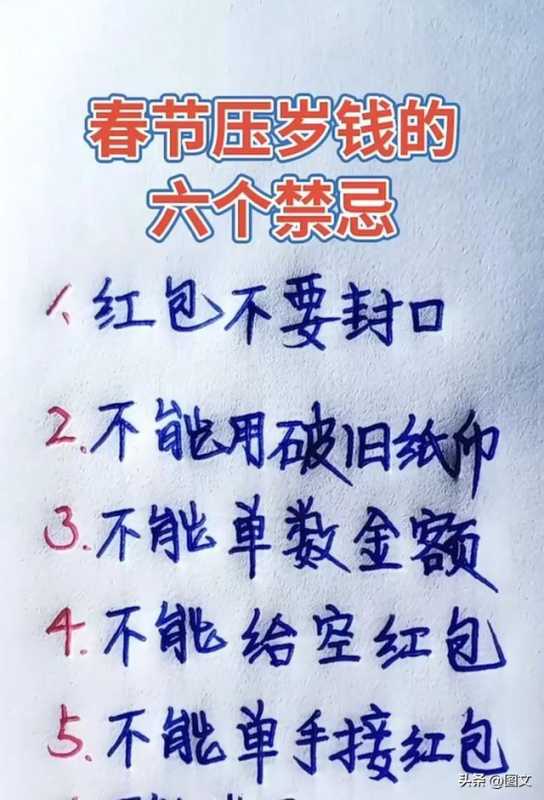 春节压岁钱的
六个禁忌
1、红包不要封口
2.不能用破旧纸币
3.不能单数金额
4.不能给空红包
5.不能单手接红包
头条 @图文